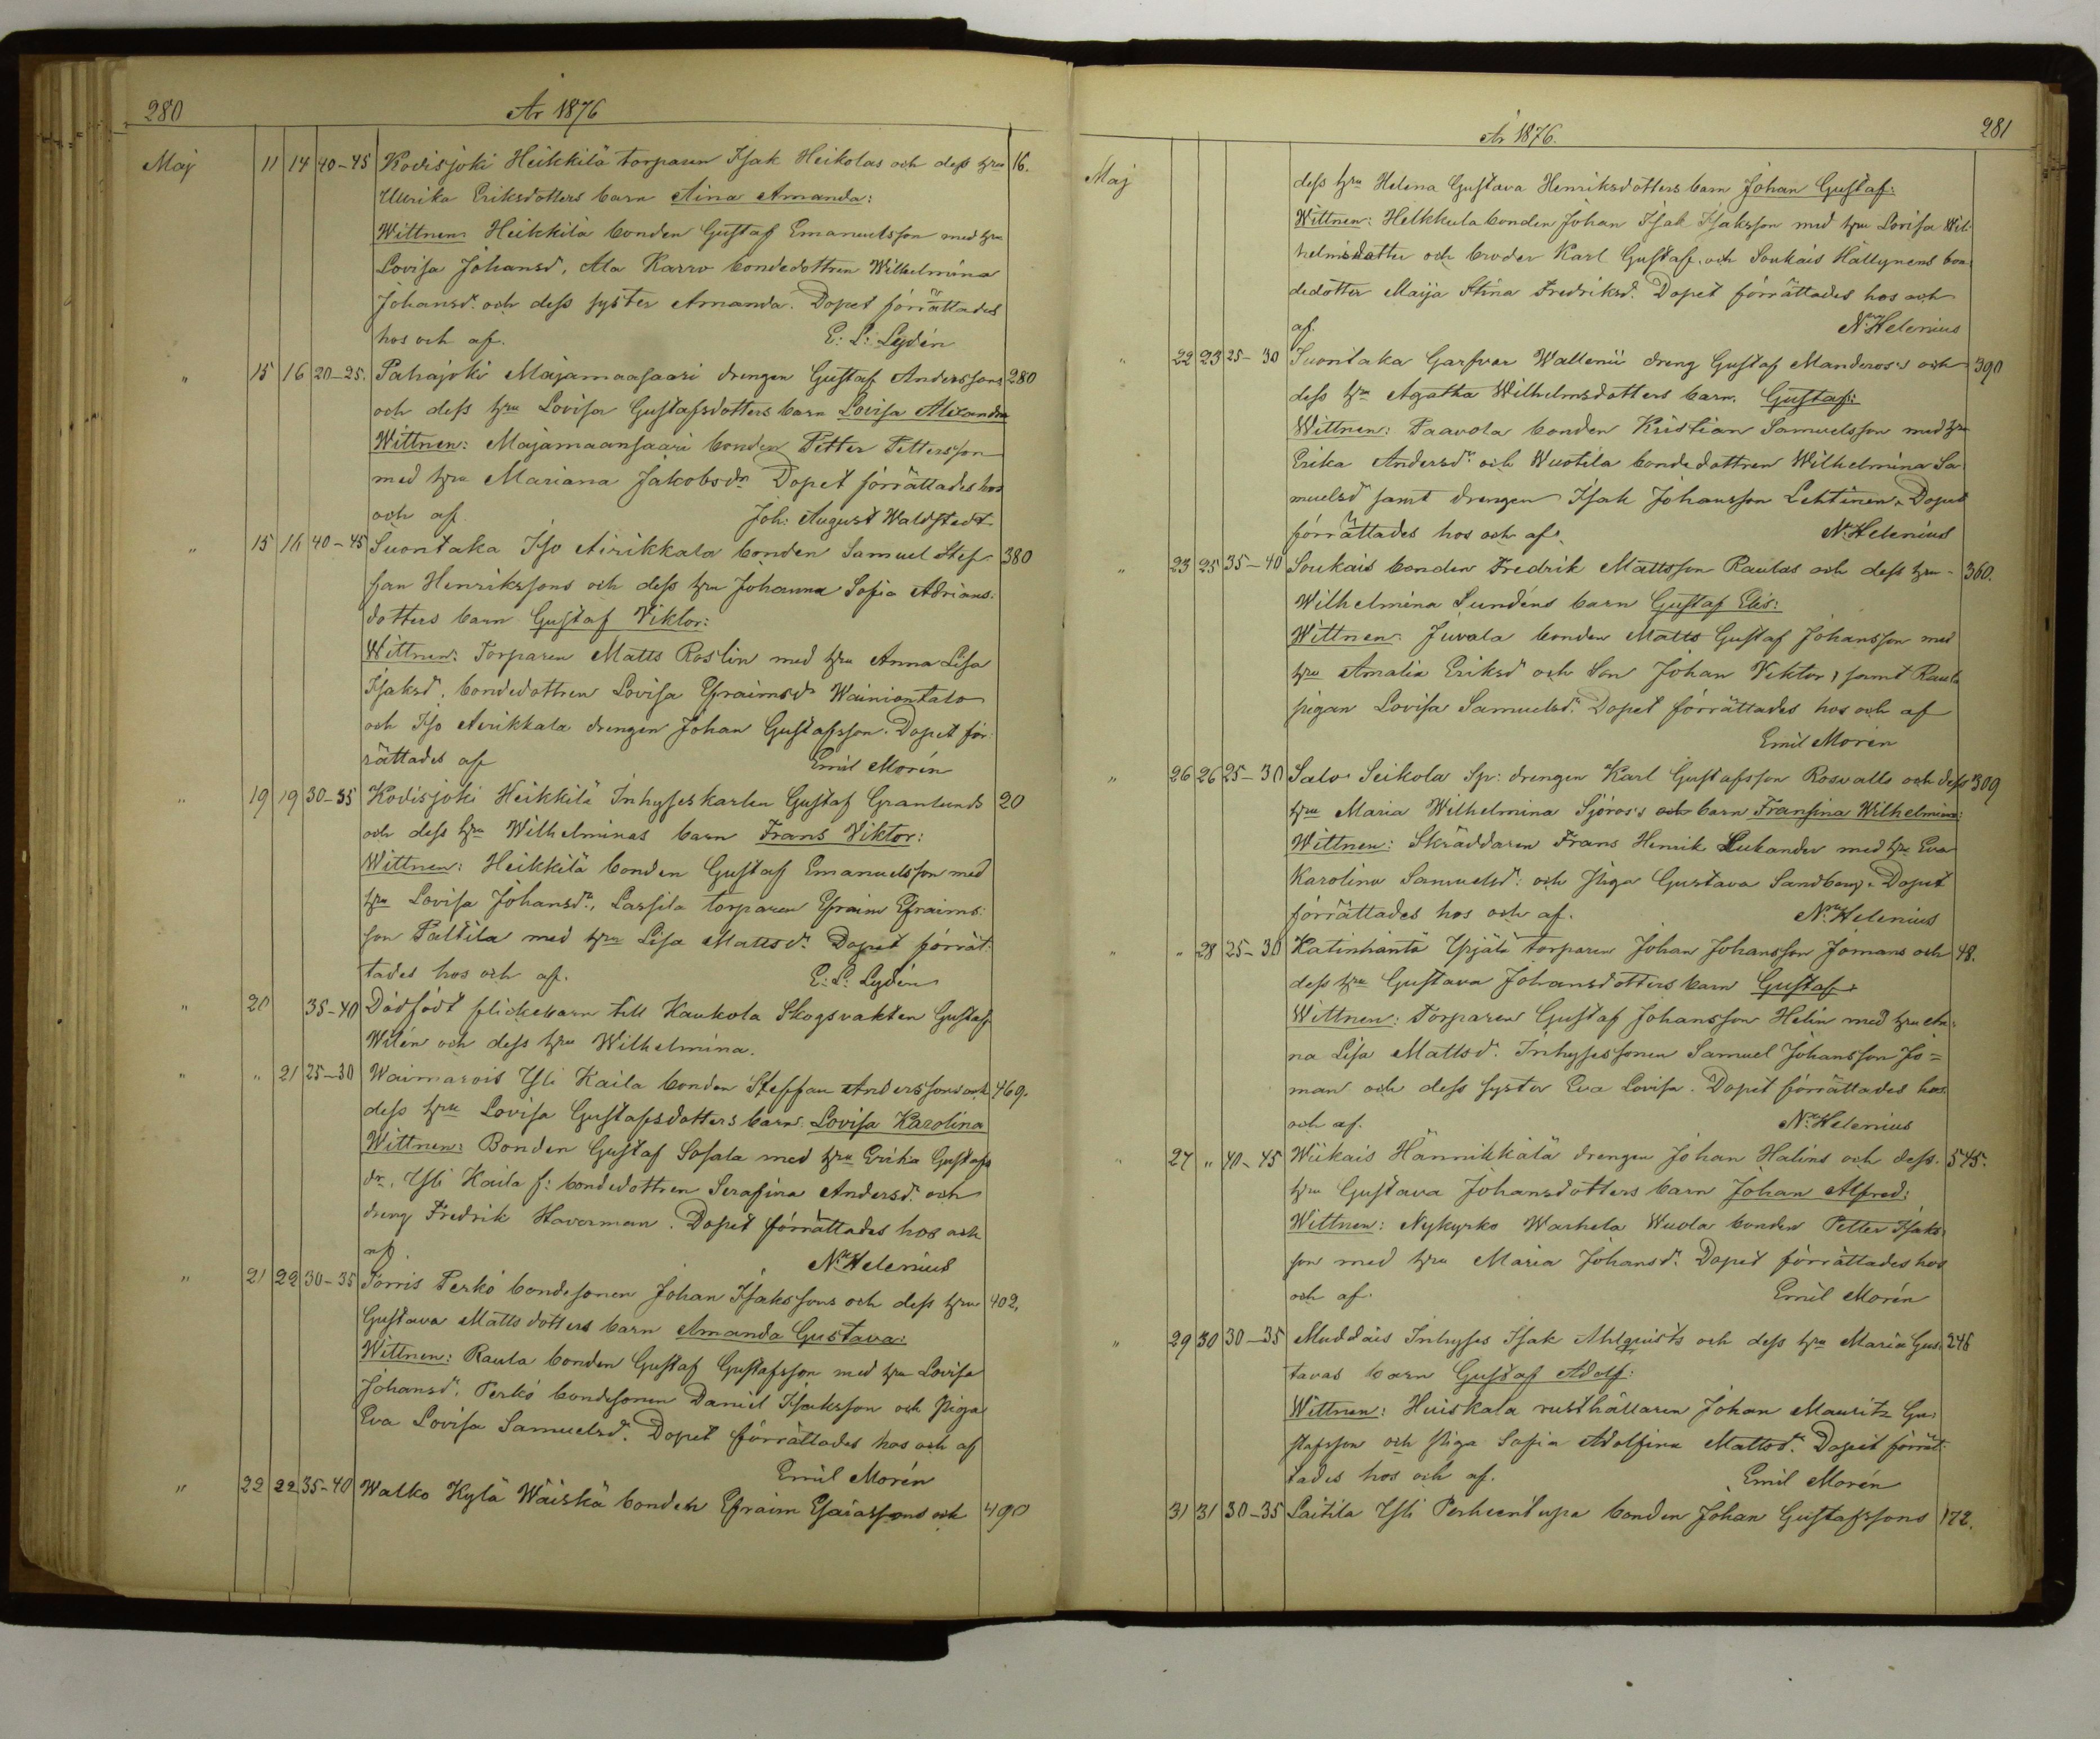 280
År 1876
Maj 11 14 40-45 Kodisjoki Heikkilä torparen Isak Heikolas och dess hru 16.
Ulrika Eriksdotters barn Aina Amanda:
Wittnen: Heikkilä bonden Gustaf Emanuelsson med hru
Lovisa Johansd., Ala Karro bondedottren Wilhelmina
Johansdr och dess syster Amanda. Dopet förrättades
hos och af. E: L: Lydén
" 15 16 20-25. Pahajoki Majamaasaari drengen Gustaf Anderssons 280
och dess hru Lovisa Gustafsdotters barn Lovisa Alexandra
Wittnen: Majamaansaari bonden Petter Pettersson
med hru Mariana Jakobsdr Dopet förrättades hos
och af Joh: August Waldstedt
" 15 16 40-45 Suontaka Iso Airikkala bonden Samuel Stef- 380
fan Henrikssons och dess hru Johanna Sofia Adrians:
dotters barn Gustaf Viktor:
Wittnen: Torparen Matts Roslin med hru Anna Lisa
Isaksd. bondedottren Lovisa Efraimsdr Wainiontalo
och Iso Airikkala drengen Johan Gustafsson. Dopet för:
rättades af Emil Morén
" 19 19 30-35 Kodisjoki Heikkilä Inhyseskarlen Gustaf Granlunds 20
och dess hru Wilhelminas barn Frans Viktor:
Wittnen: Heikkilä bonden Gustaf Emanuelsson med
hru Lovisa Johansdr, Lassila torparen Efraim Efraims:
son Paltila med hru Lisa Mattsdr. Dopet förrät:
tades hos och af. E: L: Lydén
" 20 35-40 Dödfödt flickebarn till Kaukola Skogsvakten Gustaf
Wilén och dess hru Wilhelmina.
" " 21 25-30 Waimarois Yli Kaila bonden Steffan Anderssons och 469.
dess hru Lovisa Gustafsdotters barn Lovisa Karolina
Wittnen: Bonden Gustaf Sosala med hru Erika Gustafs
dr, Yli Kaila f: bondedottren Serafina Andersdr och
dreng Fredrik Haverman. Dopet förrättades hos och
af. N. Helenius
" 21 22 30-35 Torris Perkö bondesonen Johan Isakssons och dess hru 402.
Gustava Mattsdotters barn Amanda Gustava:
Wittnen: Raula bonden Gustaf Gustafsson med hru Lovisa
Johansdr. Perkö bondesonen Daniel Isaksson och Piga
Eva Lovisa Samuelsdr. Dopet förrättades hos och af
Emil Morén
" 22 22 35-40 Walko Kylä Wäiskä bonden Efraim Esaiassons och 490
281
År 1876.
Maj
dess hru Helena Gustava Henriksdotters barn Johan Gustaf:
Wittnen: Helkkula bonden Johan Isak Isaksson med hru Lovisa Wil:
helmsdotter och broder Karl Gustaf, och Soukais Hällynens bon:
dedotter Maija Stina Fredriksd. Dopet förrättades hos och
af. N. Helenius
" 22 23 25-30 Suontaka Garfvar Wallenii dreng Gustaf Manderos's och 390
dess hru Agatha Wilhelmsdotters barn. Gustaf:
Wittnen: Paavola bonden Kristian Samuelsson med hru
Erika Andersdr och Wuotila bondedottren Wilhelmina Sa
muelsd samt drengen Isak Johansson Lehtinen. Dopet
förrättades hos och af. N. Helenius
" 23 25 35-40 Soukais bonden Fredrik Mattsson Raulas och dess hru 360.
Wilhelmina Sundéns barn Gustaf Elis:
Wittnen: Juvala bonden Matts Gustaf Johansson med
hru Amalia Eriksd och Son Johan Viktor, samt Raula
pigan Lovisa Samuelsdr. Dopet förrättades hos och af
Emil Morén
" 26 26 25-30 Salo Seikola Sp: drengen Karl Gustafsson Rosvalls och dess 309
hru Maria Wilhelmina Sjöros's och barn Fransina Wilhelmina:
Wittnen: Skräddaren Frans Henrik Lukander med hru Eva
Karolina Samuelsd: och Piga Gustava Sandberg. Dopet
förrättades hos och af. N. Helenius
" " 28 25-30 Katinhäntä Ypjälä torparen Johan Johansson Jomans och 48.
dess hru Gustava Johansdotters barn Gustaf.
Wittnen: Torparen Gustaf Johansson Helin med hru An:
na Lisa Mattsd. Inhysessonen Samuel Johansson Jo=
man och dess syster Eva Lovisa. Dopet förrättades hos
och af. N. Helenius
27 " 40-45 Wiikais Hännikkälä drengen Johan Halins och dess 545.
hru Gustava Johansdotters barn Johan Alfred:
Wittnen: Nykyrko Warhela Wuola bonden Petter Isaks:
son med hru Maria Johansdr. Dopet förrättades hos
och af. Emil Morén
" 29 30 30-35 Muddais Inhyses Isak Ahlqvists och dess hru Maria Gus: 246
tavas barn Gustaf Adolf:
Wittnen: Huiskala rusthållaren Johan Mauritz Gu:
stafsson och Piga Sofia Adolfina Mattsdr. Dopet förrät:
tades hos och af. Emil Morén
31 31 30-35 Laitila Yli Perheentupa bonden Johan Gustafssons 172.